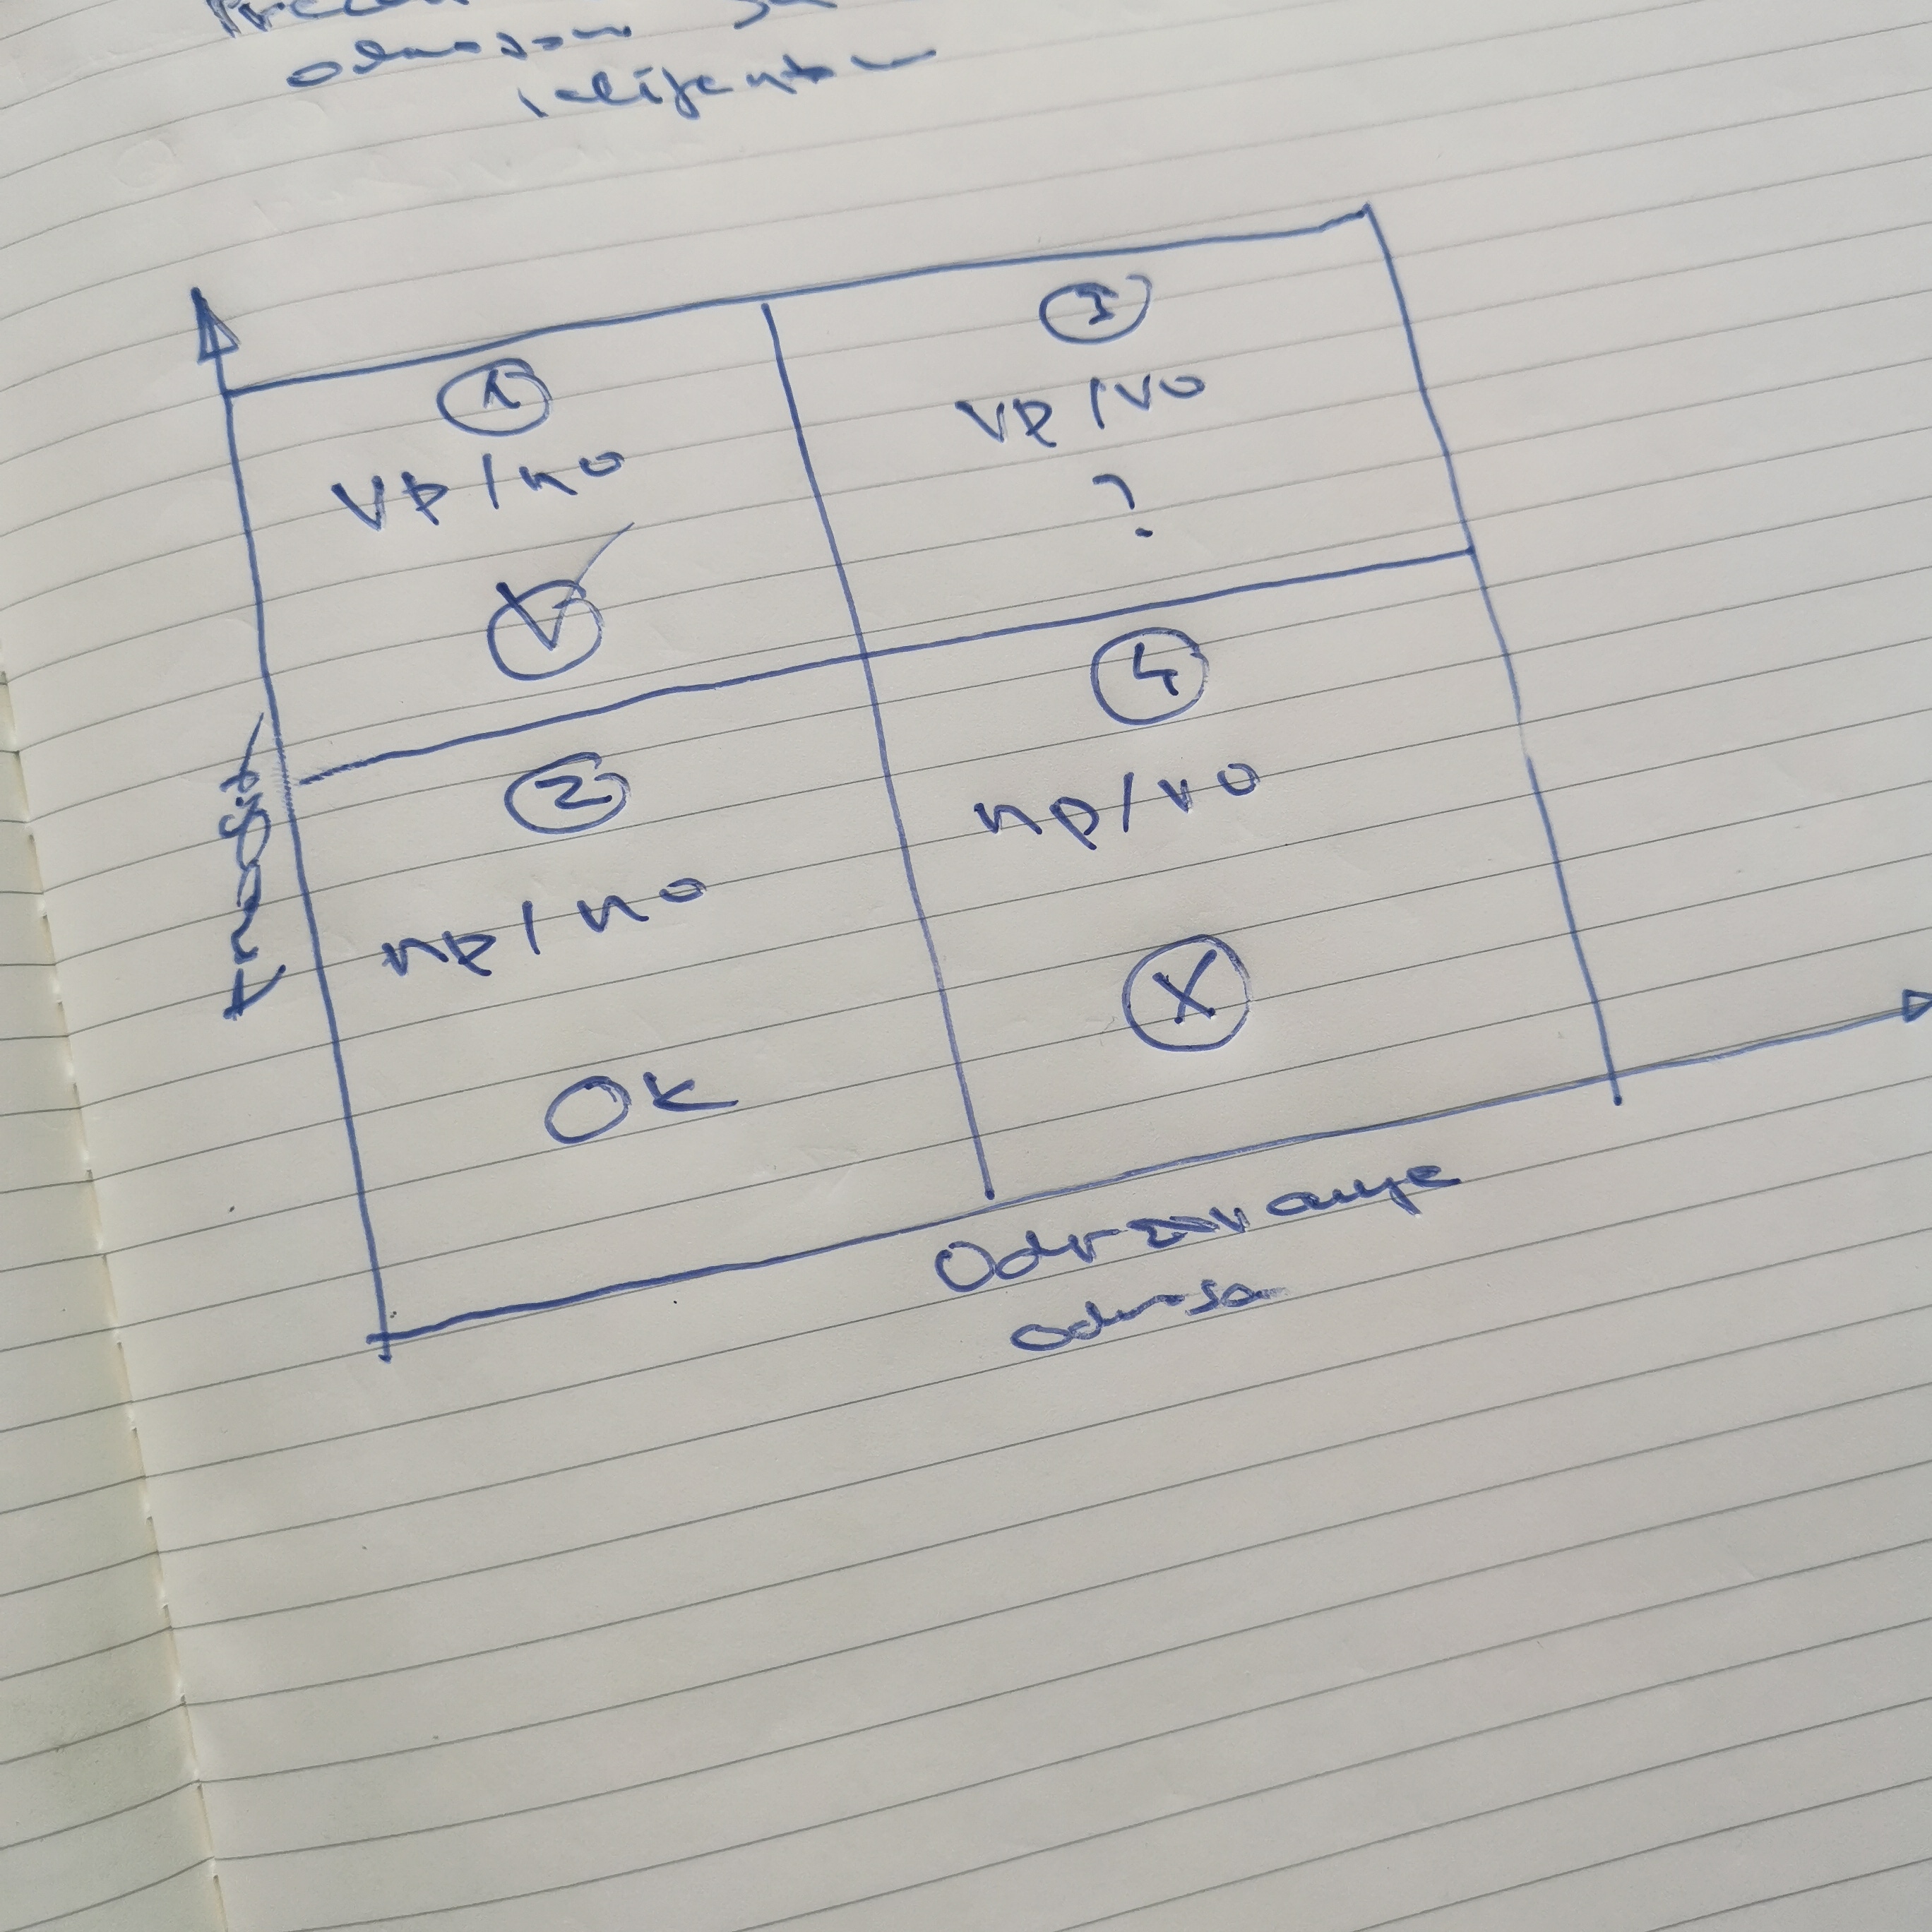 odnosom sa
klijentom
1
VP / no
3
VP / VO
?
2
np / no
OK
4
np / vo
X
Održavanje
odnosa